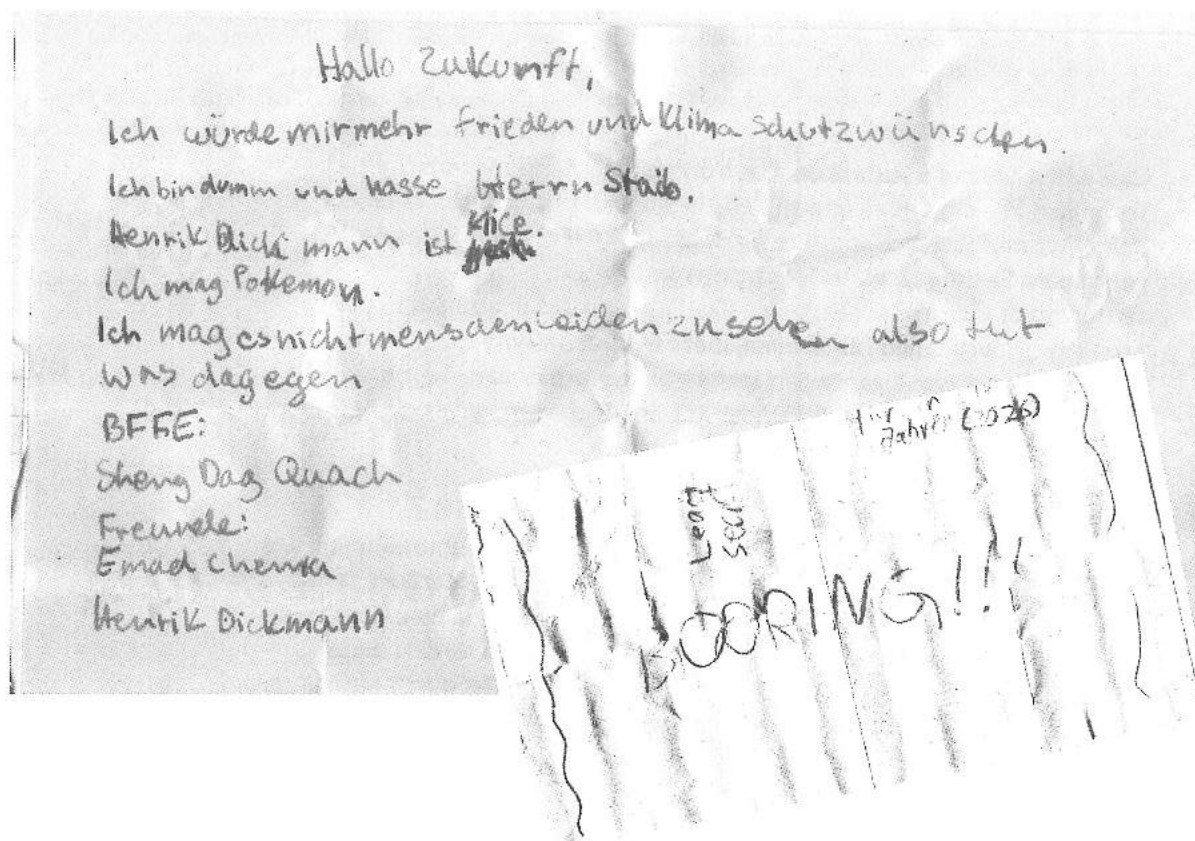 Hallo Zukunft,
Ich würde mir mehr Frieden und Klima Schutz wünschen.
Ich bin dumm und hasse Herrn Staib.
Henrik Dickmann ist Nice.
Ich mag Pokemon.
Ich mag es nicht menschen leiden zu sehen also tut
was dagegen
BFFE:
Sheng Dag Quach
Freunde:
Emad
Henrik Dickmann
(2026)
BOORING!!!